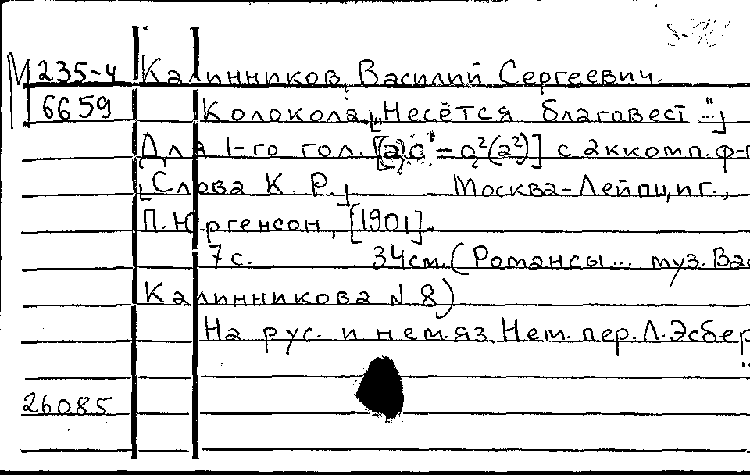 М 235-4 Калинников, Василий Сергеевич.
6659 Колокола. [„Несётся благовест ..."]
Для 1-го гол. [(а) а¹ – а² (а²)] с аккомп. ф-п
[Слова К. Р.] Москва-Лейпциг,
П. Юргенсон, [1901].
7 с. 34 см. (Романсы ... муз. Вас
Калинникова № 8)
На рус. и нем. яз. Нем. пер. Л. Эсбер
26085